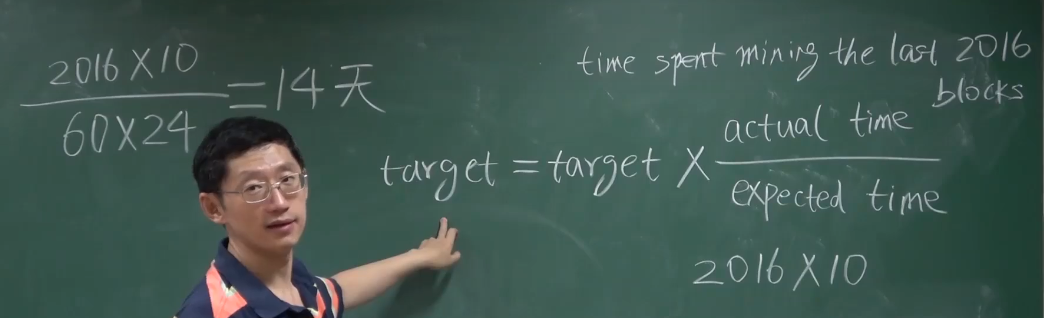 2016×10
60×24
=14天
time spent mining the last 2016
blocks
target = target × actual time
expected time
2016×10